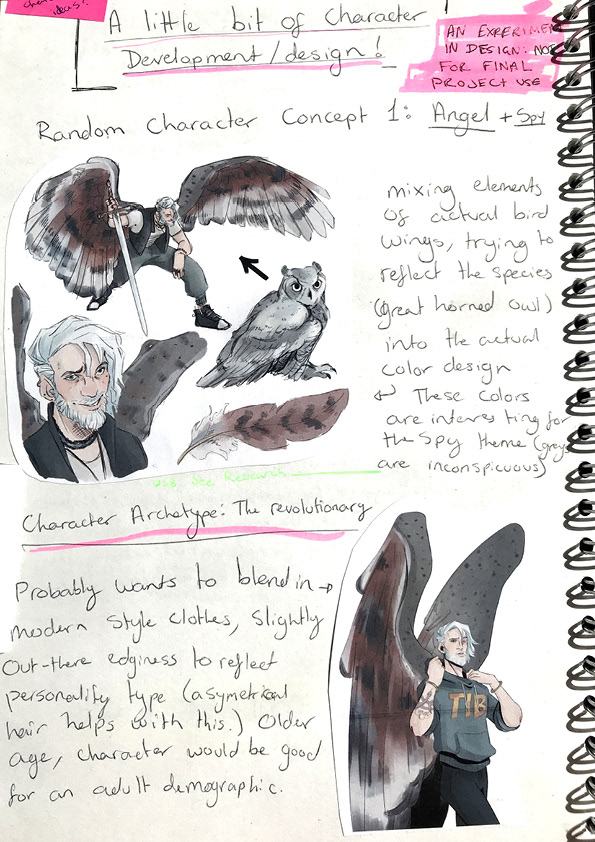 ideas!
A little bit of Character
Development/design!
AN EXPERIMENT
IN DESIGN: NOT
FOR FINAL
PROJECT USE
Random Character Concept 1: Angel + Spy
mixing elements
of actual bird
wings, trying to
reflect the species
(great horned owl)
into the actual
color design
↵ These colors
are interesting for
the Spy theme (greys
are inconspicuous)
See Research
Character Archetype: The revolutionary
Probably wants to blend in →
modern style clothes, slightly
out-there edginess to reflect
personality type (asymetrical
hair helps with this.) Older
age, character would be good
for an adult demographic.
TIB